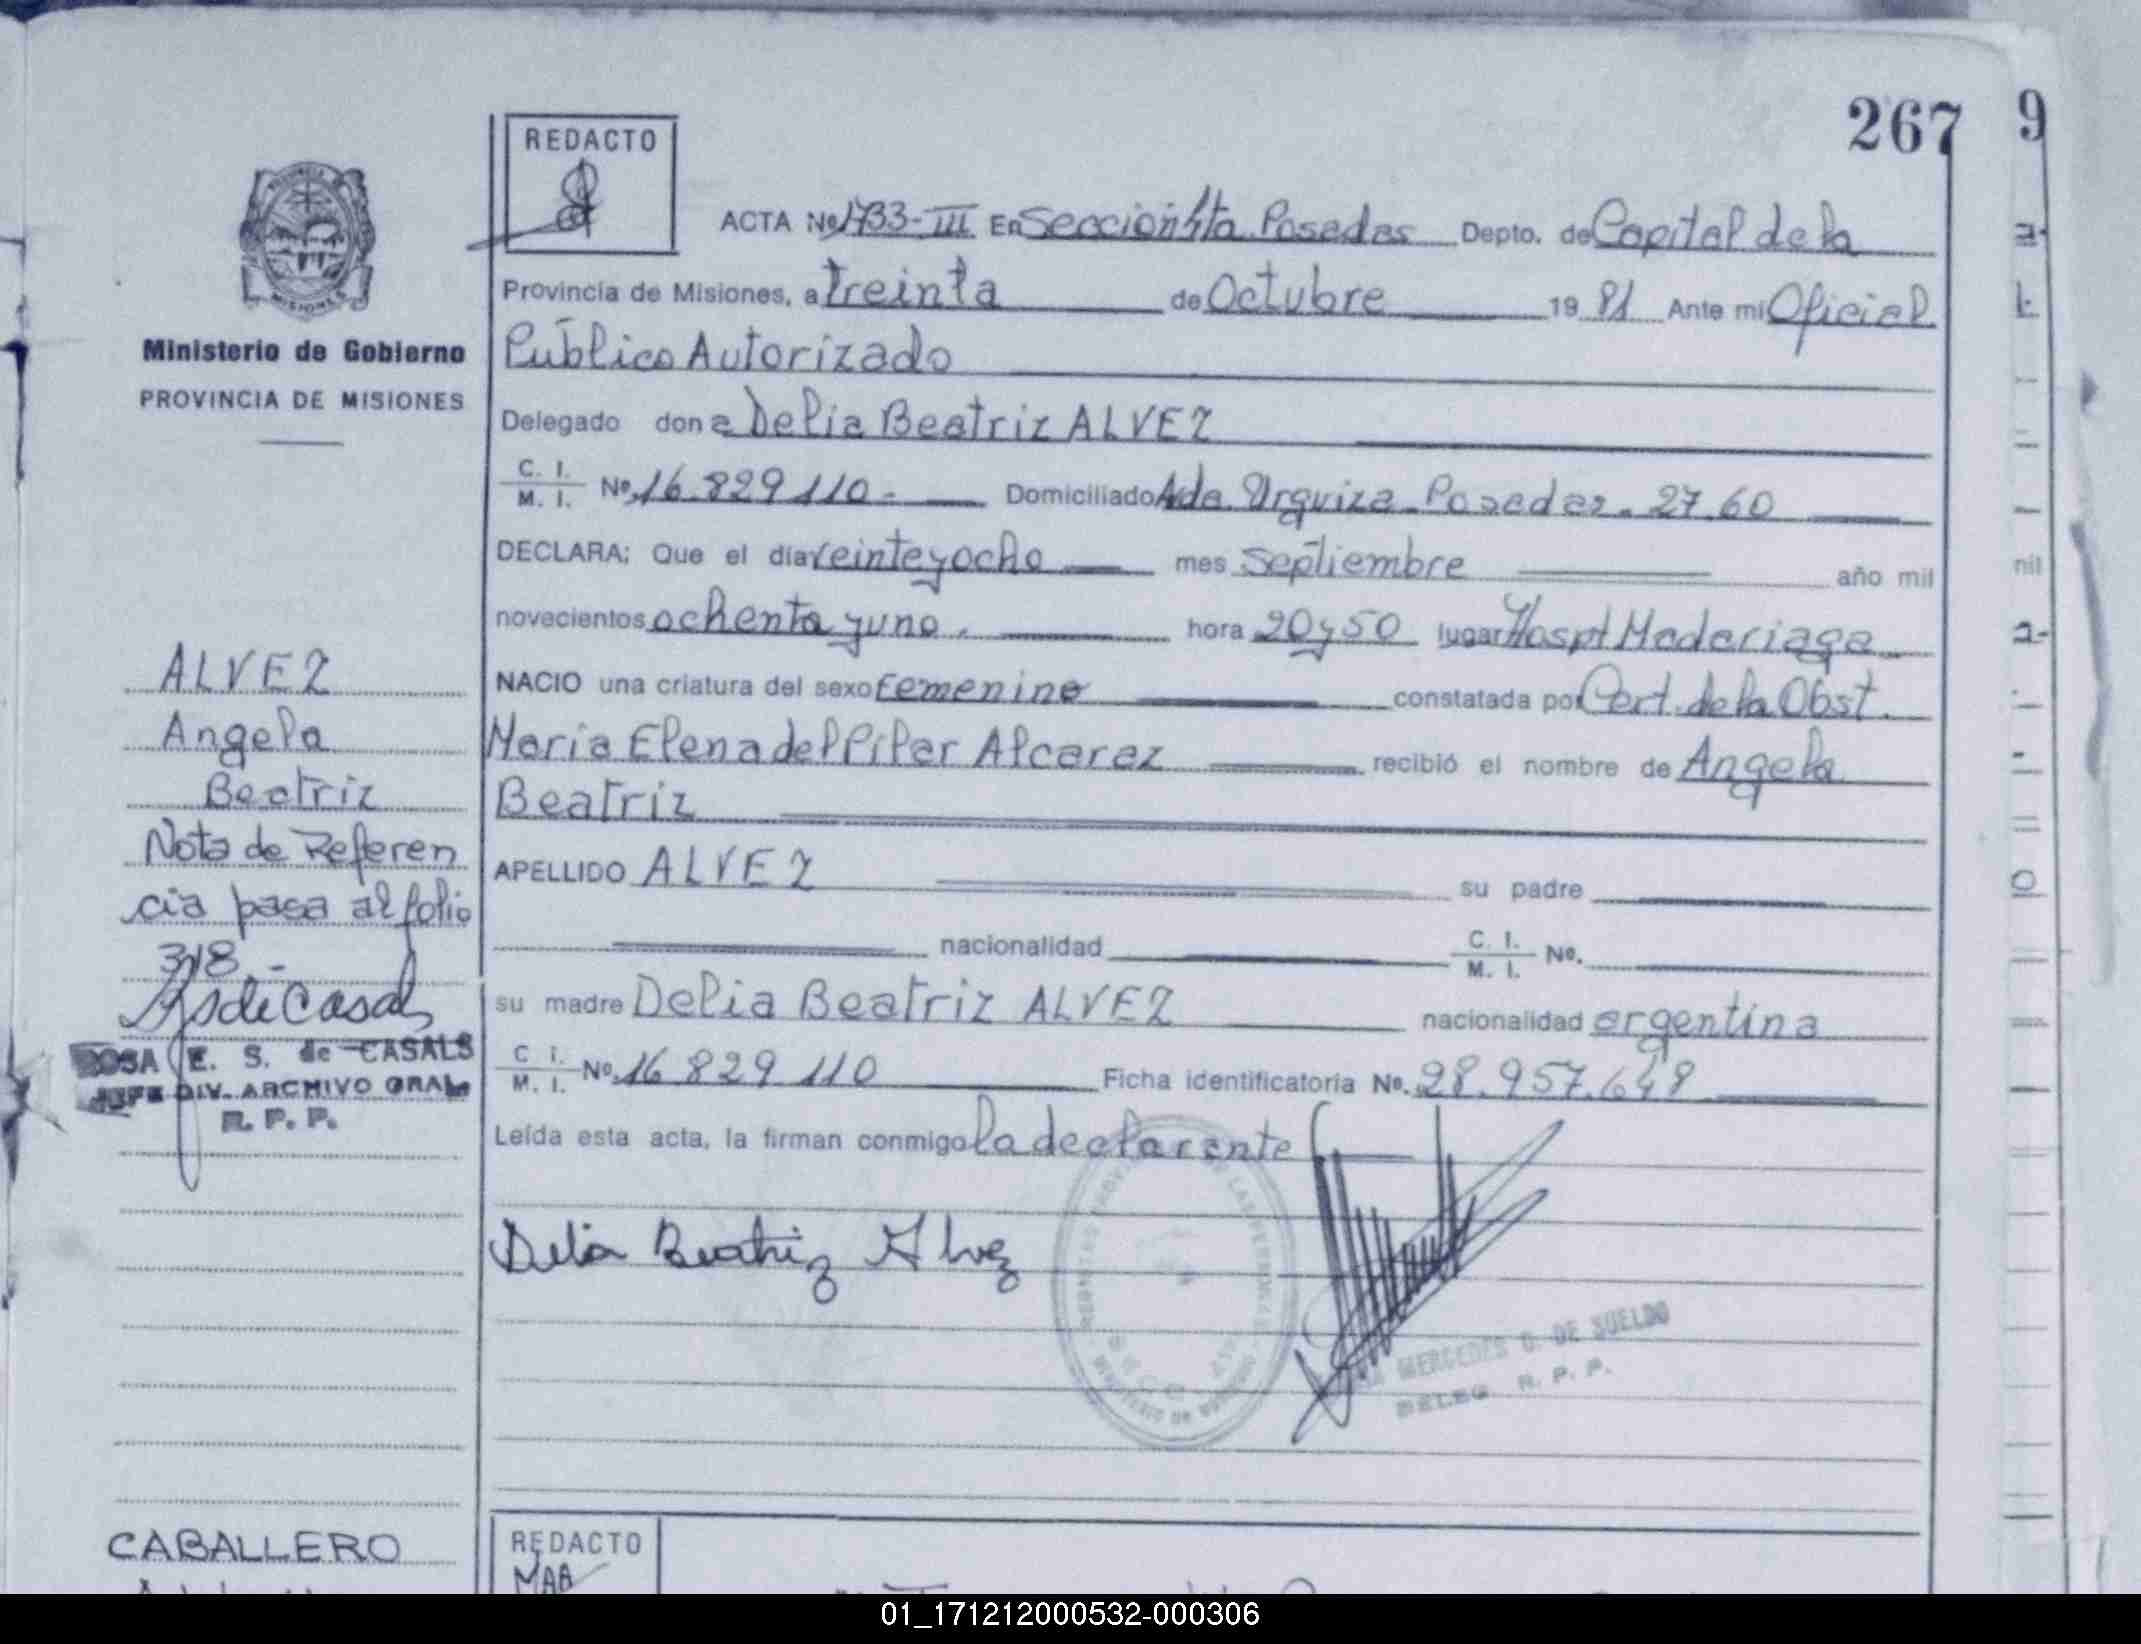 267
9
REDACTO
ACTA Nº 1733-III En Sección 4ta Posadas Depto. de Capital de la
Provincia de Misiones, a treinta de Octubre 19 81 Ante mi Oficial
Público Autorizado
Delegado don a Delia Beatriz ALVEZ
C. I. / M. I. Nº 16.829.110.- Domiciliado Avda. Urquiza - Posadas. 27.60
DECLARA: Que el día veinte y ocho mes Septiembre año mil
novecientos ochenta y uno. hora 20 y 50 lugar Hospt Madariaga
NACIO una criatura del sexo femenino constatada por Cert. de la Obst.
Maria Elena del Pilar Alcaraz recibió el nombre de Angela
Beatriz
APELLIDO ALVEZ su padre
nacionalidad C. I. / M. I. Nº.
su madre Delia Beatriz ALVEZ nacionalidad argentina
C. I. / M. I. Nº 16 829 110 Ficha identificatoria Nº. 28.957.649
Leída esta acta, la firman conmigo la declarante
Delia Beatriz Alvez
MERCEDES G. DE SUELDO
DELEG R. P. P.
Ministerio de Gobierno
PROVINCIA DE MISIONES
ALVEZ
Angela
Beatriz
Nota de Referen
cia pasa al folio
318.-
ROSA E. S. de CASALS
JEFE DIV. ARCHIVO GRAL
R. P. P.
CABALLERO
REDACTO
MAA
01_171212000532-000306